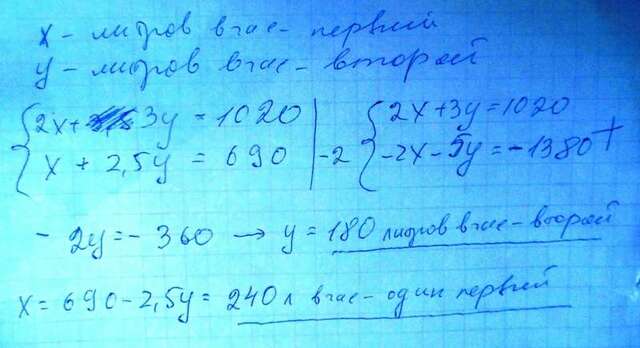 x - литров в час - первый
y - литров в час - второй
{2x + 3y = 1020 | {2x + 3y = 1020
{x + 2,5y = 690 | -2 {-2x - 5y = -1380 +
- 2y = - 360 → y = 180 литров в час - второй
x = 690 - 2,5y = 240 л в час - один первый